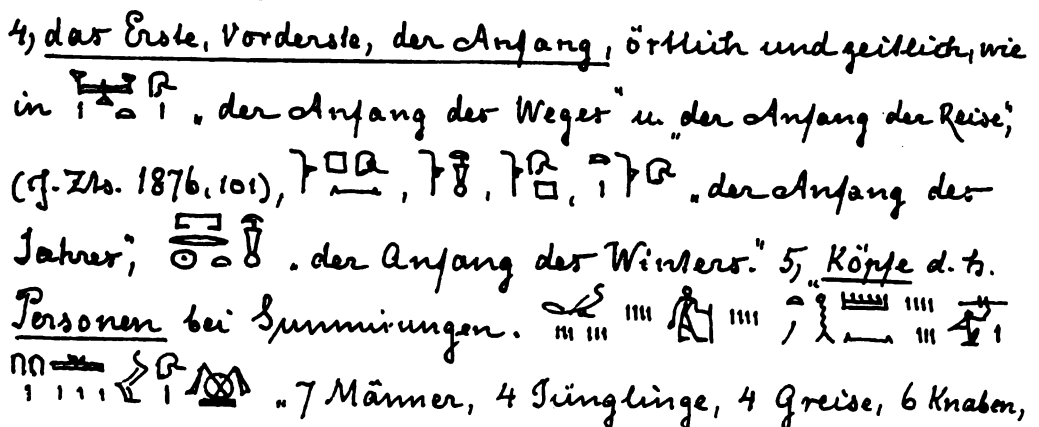 4, das Erste, Vorderste, der Anfang, örtlich und zeitlich, wie
in „der Anfang des Weges“ u. „der Anfang der Reise“,
(cf. Zts. 1876, 101), , , , „der Anfang des
Jahres“, „der Anfang des Winters.“ 5, „Köpfe d. h.
Personen bei Summirungen.
„7 Männer, 4 Jünglinge, 4 Greise, 6 Knaben,